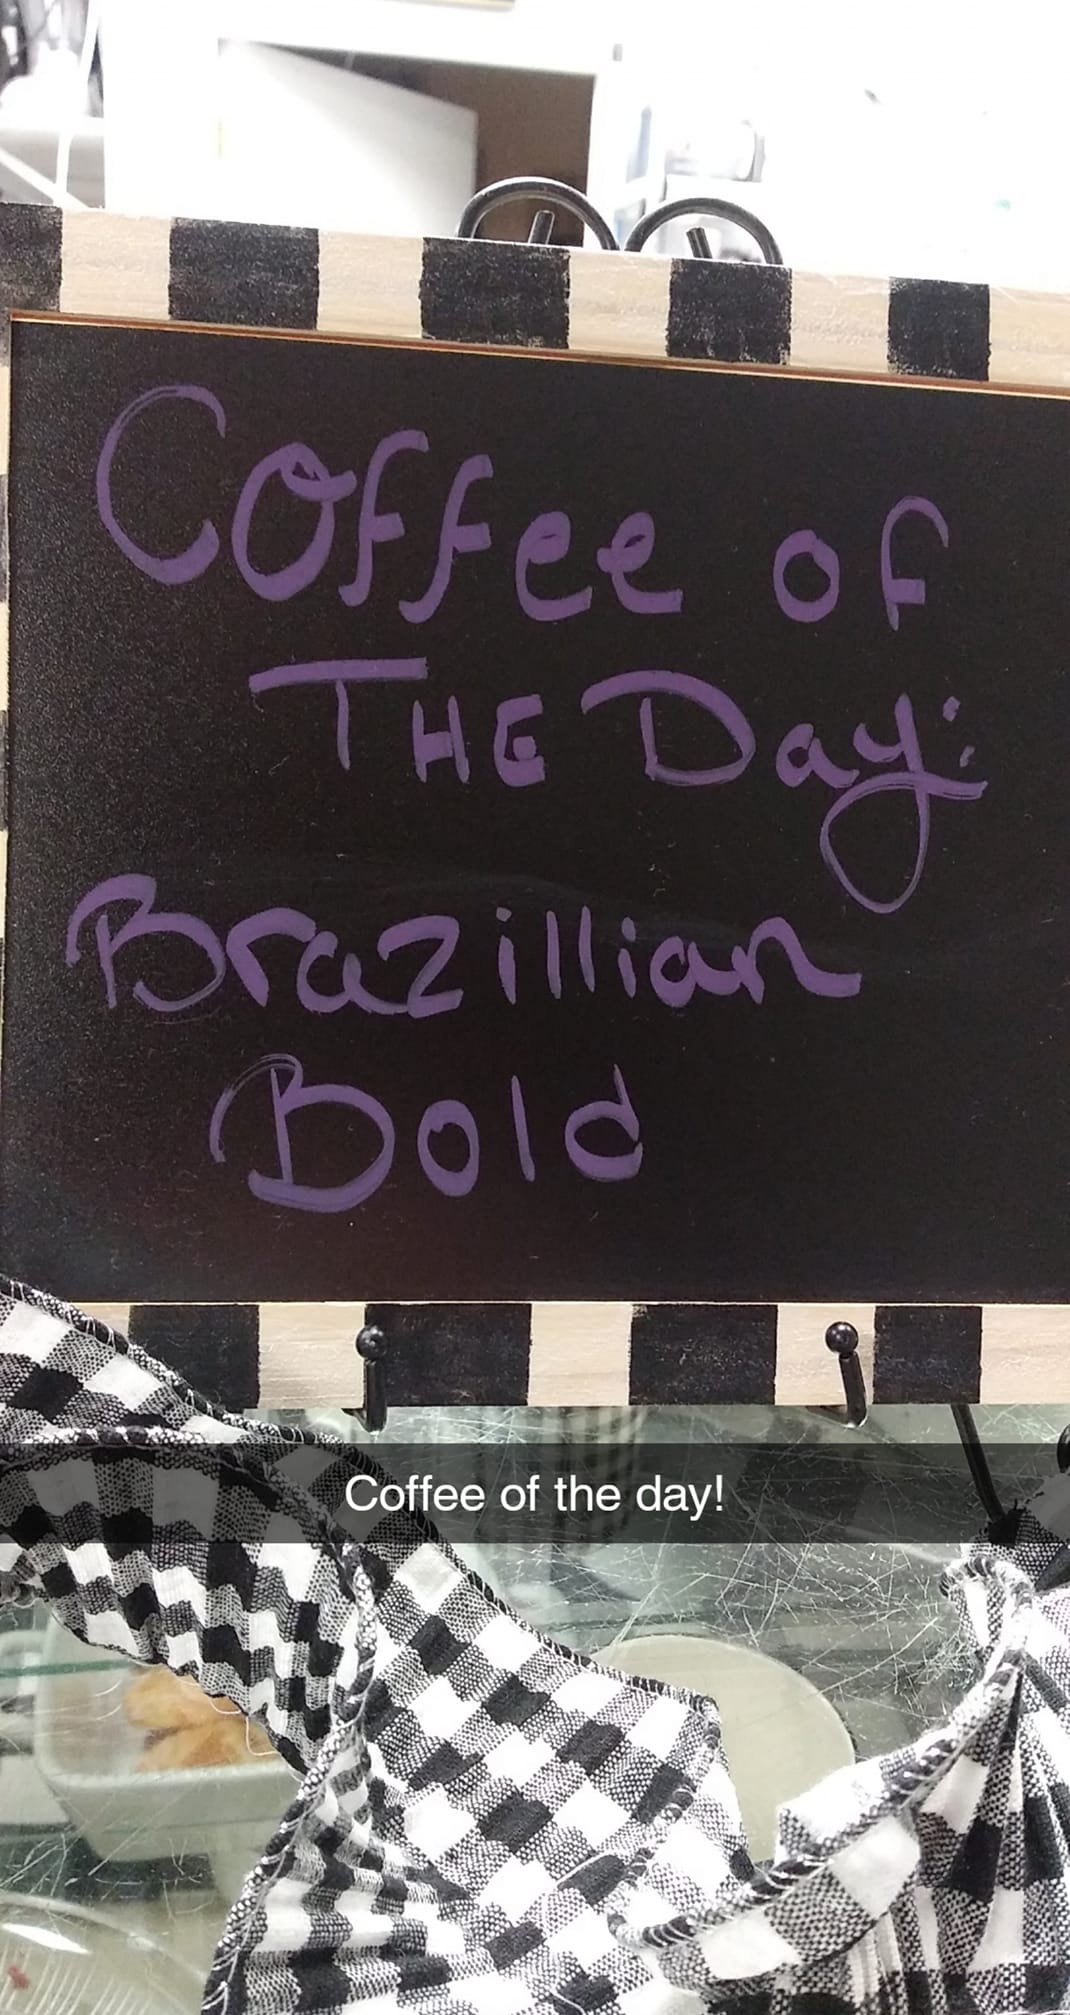 Coffee of
THE Day:
Brazillian
Bold
Coffee of the day!